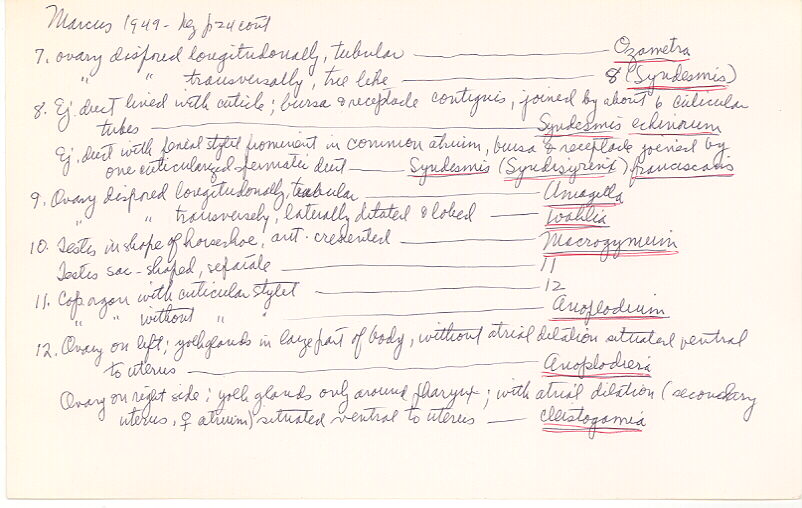 Marcus 1949 - Key p 24 cont
7. ovary disposed longitudonally, tubular — Ozametra
" " transversally, tree like — 8 (Syndesmis)
8. Ej. duct lined with cuticle; bursa & receptacle contiguis, joined by about 6 cuticular
tubes — Syndesmis echinorum
Ej. duct with penial stylet prominent in common atrium, bursa & receptacle joined by
one cuticularized spermatic duct — Syndesmis (Syndisyrinx) franciscans
9. Ovary disposed longitudonally, tubular — Umagilla
" " transversely, laterally dilated & lobed — Wahlia
10. Testes in shape of horseshoe, ant. cresented — Macrogynium
Testes sac-shaped, separate — 11
11. Cop organ with cuticular stylet — 12
" " without " " — Anoplodium
12. Ovary on left; yolkglands in large part of body, without atrial dilation situated ventral
to uterus — Anoplodiera
Ovary on right side; yolk glands only around pharynx; with atrial dilation (secondary
uterus, ♀ atrium) situated ventral to uterus — Cleistogamia